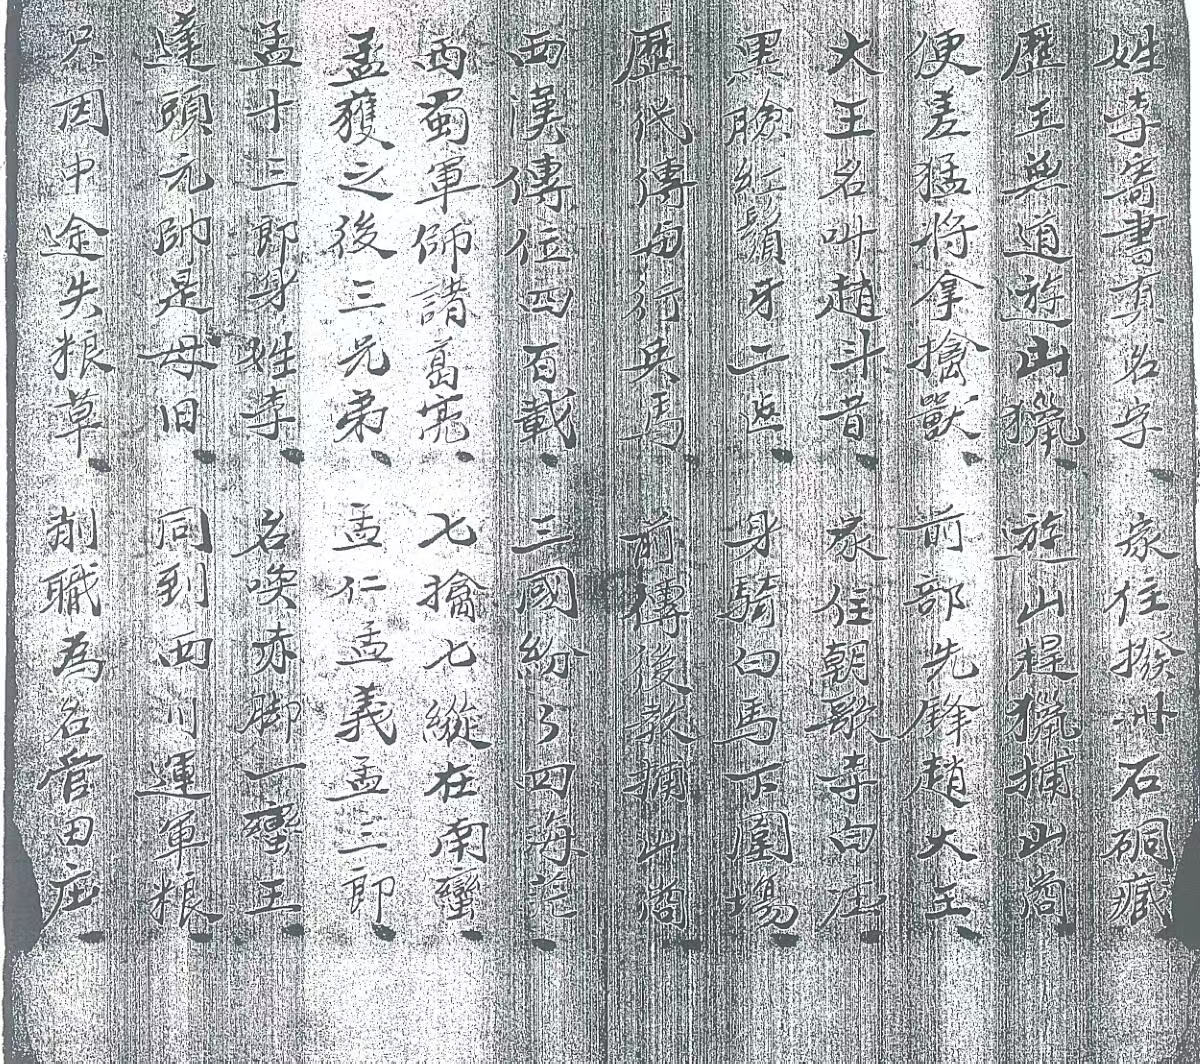 姓李寄書真名字 家住撥州石硐藏
歷王無道遊山獵 遊山趕獵捕山崗
便差猛將拿擒獸 前部先鋒趙大王
大王名叫趙斗昔 家住朝歌李白庄
黑臉紅鬚牙二 身騎白馬下圍場
歷代傳 行兵馬 前傳後教捕山崗
西漢傳位四百載 三國紛々四海荒
西蜀軍師諸葛亮 七擒七縱在南蠻
孟獲之後三兄弟 孟仁孟義孟三郎
孟十三郎身姓李 名喚赤脚一蠻王
達頭元帥是母旧 同到四川運軍粮
只因中途失粮草 削職為名管田庄